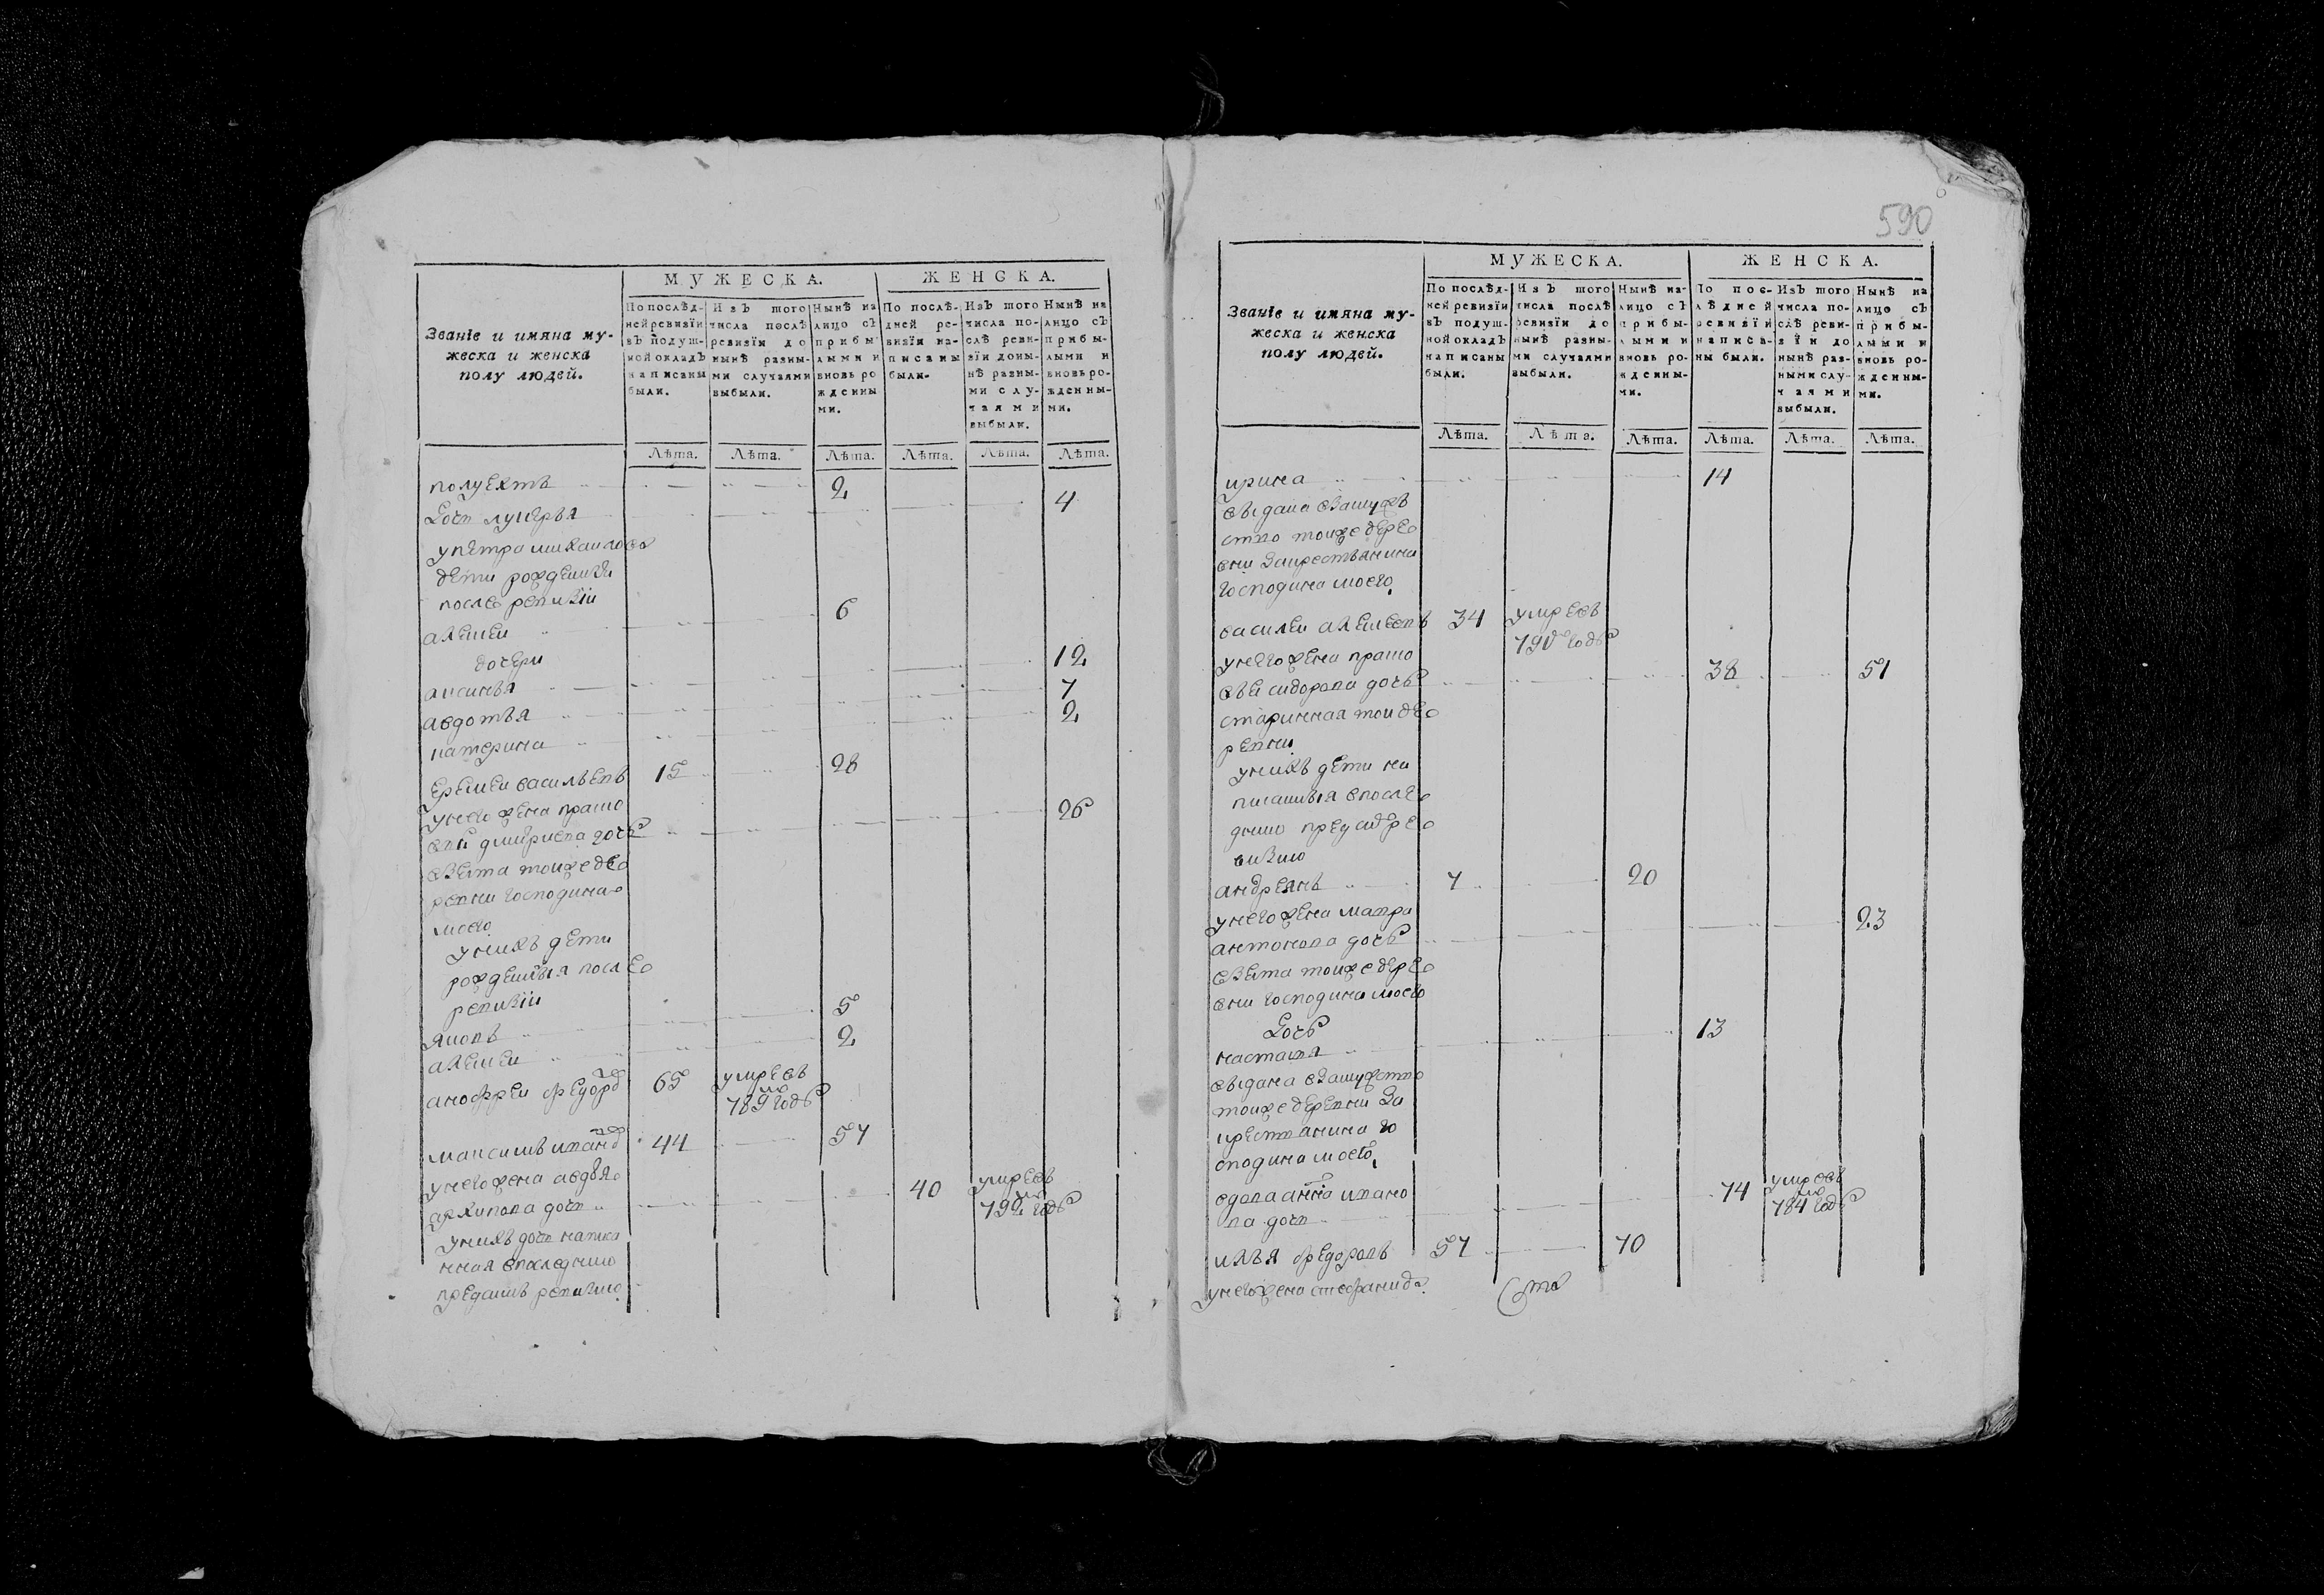 МУЖЕСКА.
ЖЕНСКА.
Званіе и имяна му-
жеска и женска
полу людей.
По послѣд-
ней ревизіи
въ подуш-
ной окладъ
написаны
были.
Изъ того
числа послѣ
ревизіи до
нынѣ разны-
ми случаями
выбыли.
Нынѣ на
лицо съ
прибы
лыми и
вновь ро
жденны
ми.
По послѣ-
дней ре-
визіи на-
писаны
были.
Изъ того
числа по-
слѣ реви-
зіи доны-
нѣ разны-
ми слу-
чаями
выбыли.
Нынѣ на
лицо съ
прибы-
лыми и
вновь ро-
жденны-
ми.
Лѣта. Лѣта. Лѣта. Лѣта. Лѣта. Лѣта.
полуехтъ 2
дочь лукерья 4
упетра михаилова
дети рожденныи
после ревизіи
алексеи 6
дочери
аксинья 12
авдотья 7
катерина 2
еремеи васильевъ 15 28
унего жена праско
вья дмитриева дочь 26
взята тоиже де
ревни господина
моего
унихъ дети
рожденныя после
ревизіи
яковъ 5
алексеи 2
анофреи федоров 65 умревъ
789 году
максимъ иванов 44 57
унего жена авдотья
архипова дочь 40 умревъ
792 году
унихъ дочь написа
нная впоследнюю
предсимъ ревизию
590
МУЖЕСКА.
ЖЕНСКА.
Званіе и имяна му-
жеска и женска
полу людей.
По послѣд-
ней ревизіи
въ подуш-
ной окладъ
написаны
были.
Изъ того
числа послѣ
ревизіи до
нынѣ разны-
ми случаями
выбыли.
Нынѣ на-
лицо съ
прибы-
лыми и
вновь ро-
жденны-
ми.
По пос-
лѣдней
ревизіи
написа-
ны были.
Изъ того
числа по-
слѣ реви-
зіи до
нынѣ раз-
ными слу-
чаями
выбыли.
Нынѣ на
лицо съ
прибы-
лыми и
вновь ро-
жденны-
ми.
Лѣта. Лѣта. Лѣта. Лѣта. Лѣта. Лѣта.
ирина 14
выдана взамужъ
ство тоиже дере
вни закрестьянина
господина моего
василеи алексеевъ 34 умревъ
790 году
унего жена праско
вья сидорова дочь 38 51
старинная тои де
ревни
унихъ дети на
писанныя впосле
днюю предсимъ ре
визию
андреянъ 7 20
унего жена мавра
антонова дочь 23
взята тоиже дере
вни господина моего
дочь
настасья 13
выдана взамужство
тоиже деревни за
крестьянина го
сподина моего
вдова анна ивано
ва дочь 74 умревъ
784 году
илья федоровъ 57 70
унего жена степанида